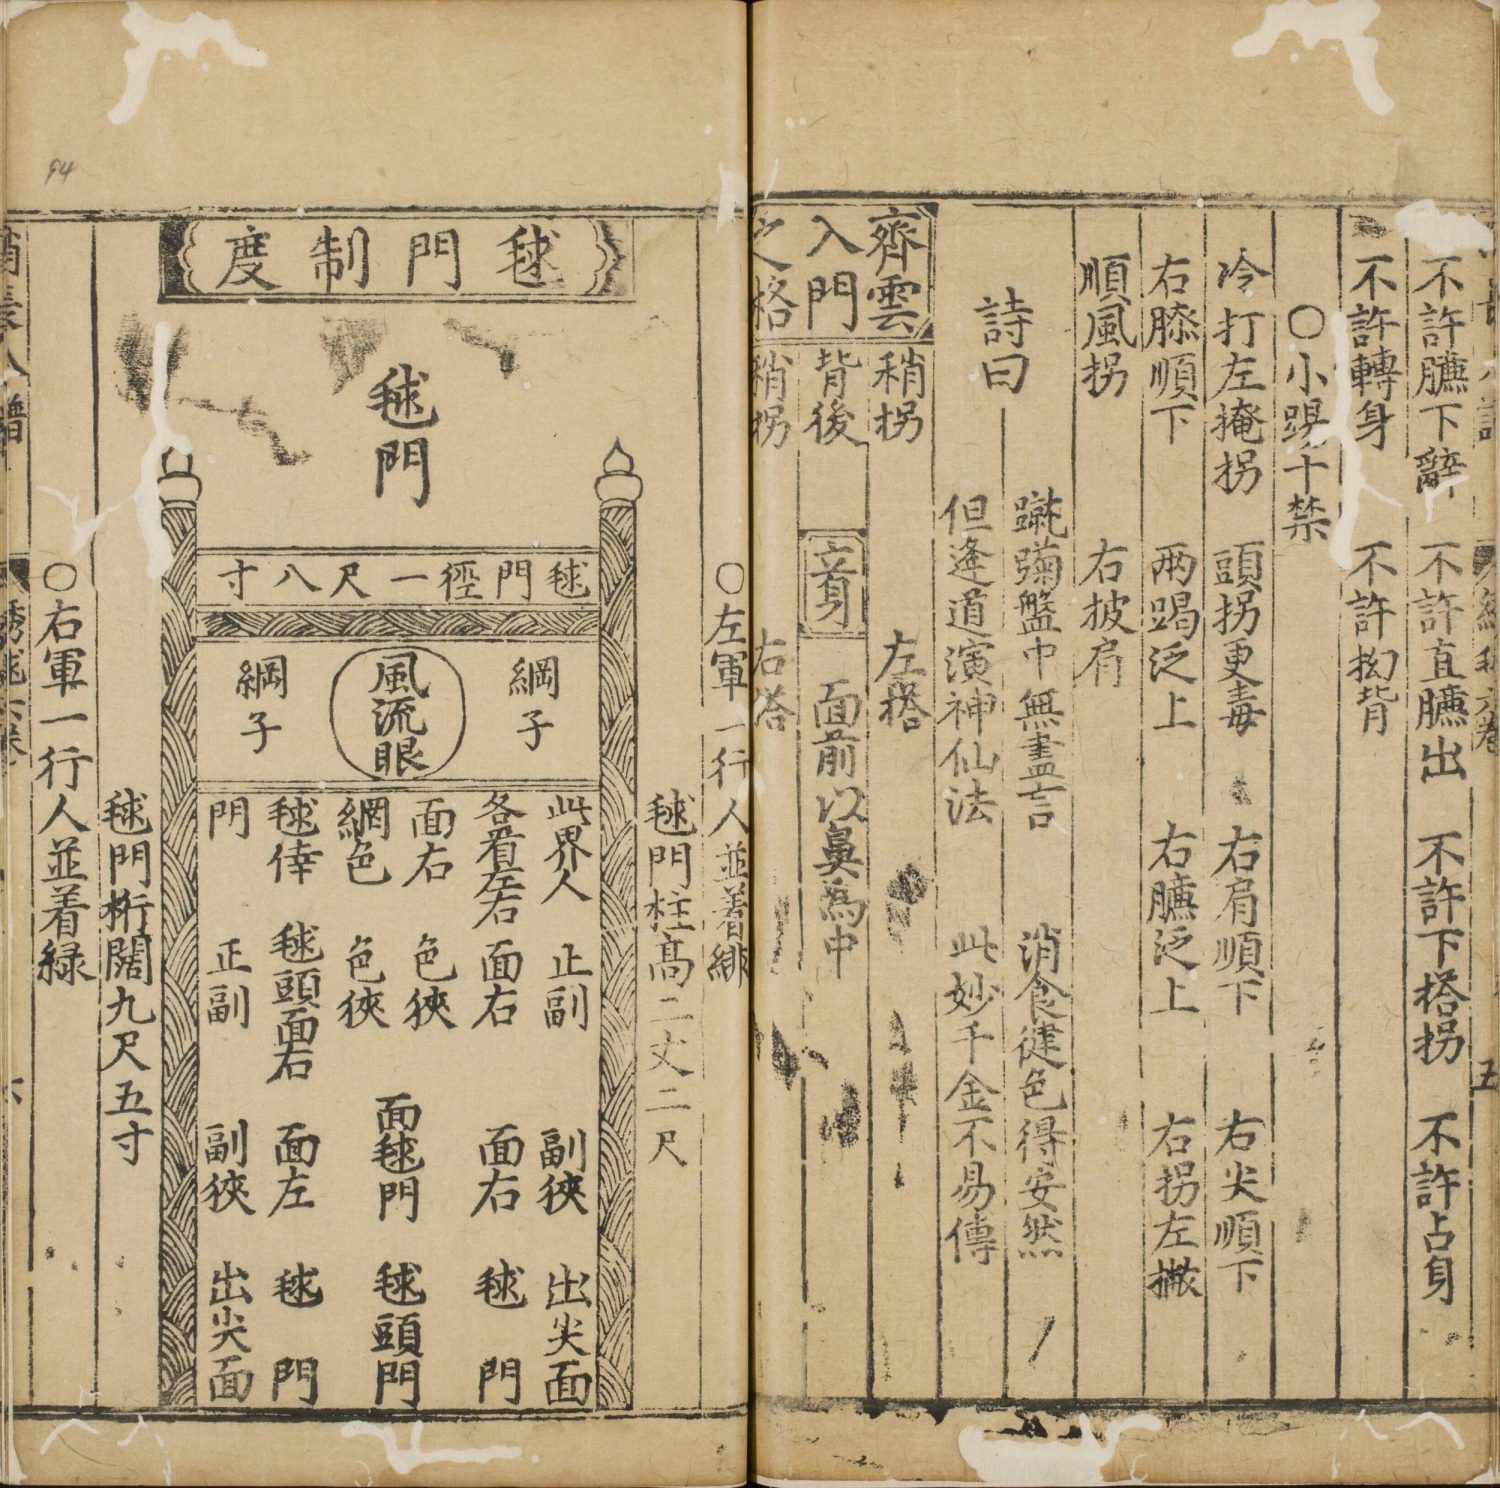 不許臁下辭　不許直臁出　不許下搭拐　不許占身
不許轉身　不許拗背
○小踢十禁
冷打左掩拐　頭拐更毒　右肩順下　右尖順下
右膝順下　兩踢泛上　右臁泛上　右拐左撇
順風拐　右披肩
蹴踘盤中無盡言　消食健色得安然
詩曰
但逢道演神仙法　此妙千金不易傳
齊雲
入門
之格
稍拐　左搭
背後　面前以鼻為中
稍拐　右搭
○左軍一行人並着緋
毬門柱高二丈二尺
毬門制度
毬門
毬門徑一尺八寸
網子
風流眼
網子
此界人　正副　副狹　出尖面
各看左右　面右　面右　毬門
面右　色狹
網色　色狹　面毬門　毬頭門
毬倖　毬頭面右　面左　毬門
門　正副　副狹　出尖面
毬門桁闊九尺五寸
○右軍一行人並着緑
94